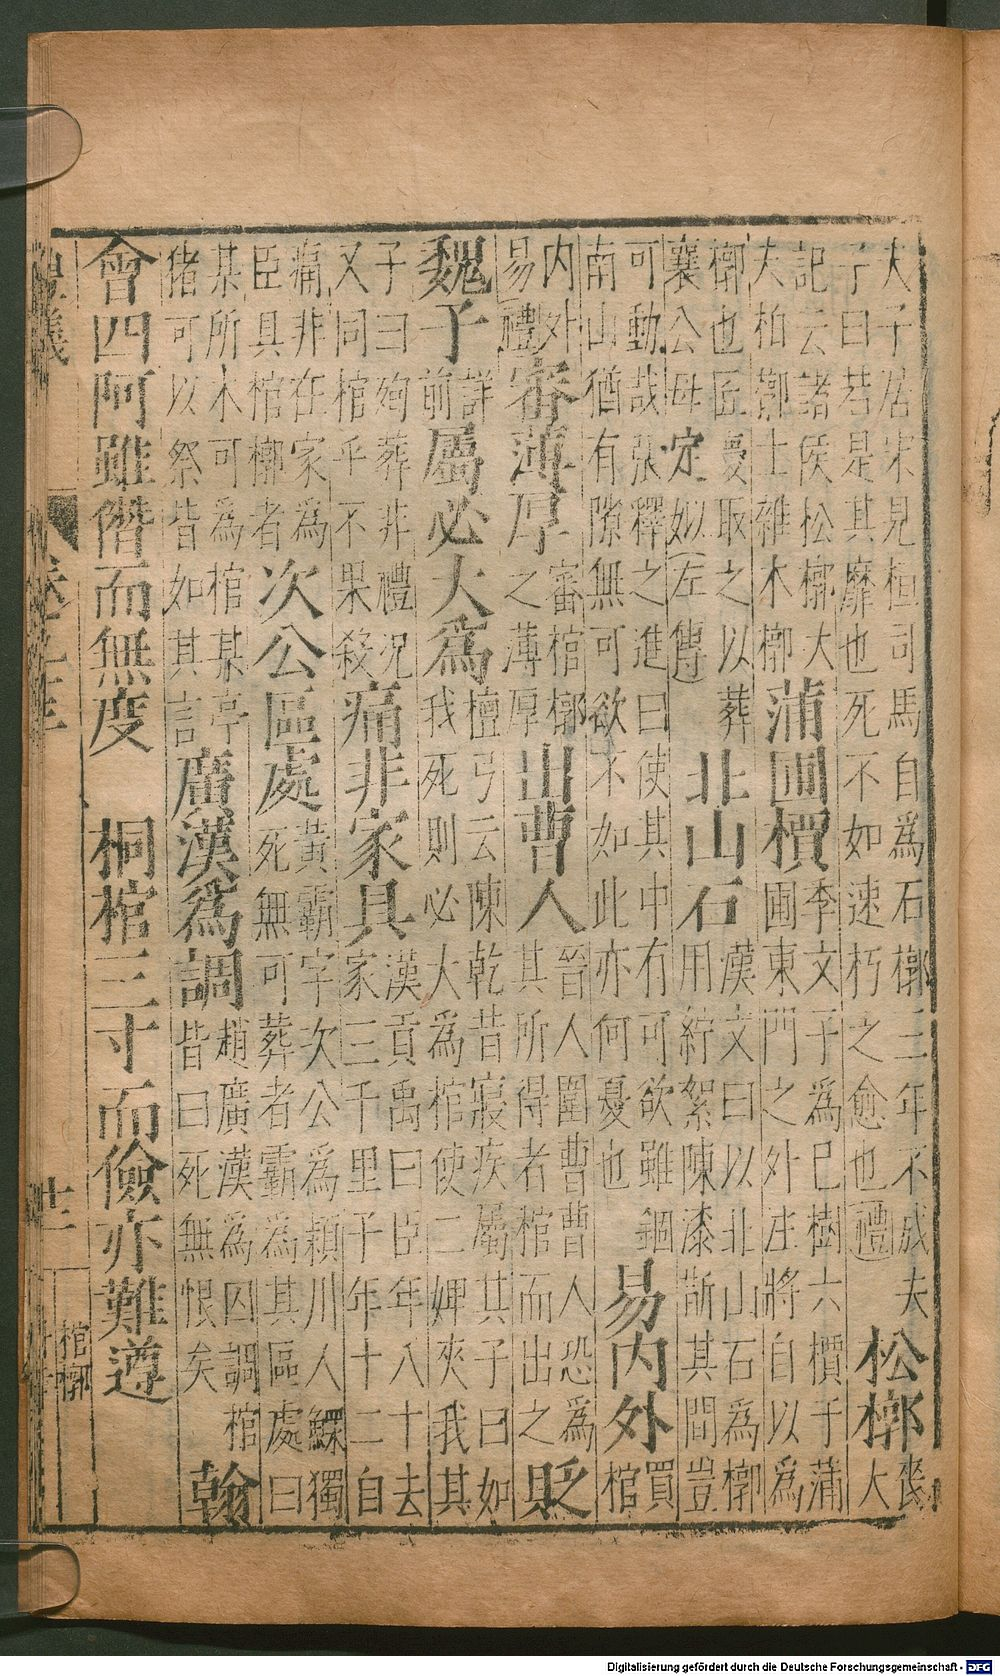 夫子居宋見桓司馬自為石槨三年不成夫
子曰若是其靡也死不如速朽之愈也(禮)
松槨
喪
大
記云諸侯松槨大
夫柏槨士雜木槨
蒲圃檟
季文子為己樹六檟于蒲
圃東門之外注將自以為
槨也匠慶取之以葬
襄公母定姒(左傳)
北山石
漢文曰以北山石為槨
用紵絮陳漆斮其間豈
可動哉張釋之進曰使其中有可欲雖錮
南山猶有隙無可欲不如此亦何憂也
易內外
買
棺
內外
易禮
審薄厚
審棺槨
之薄厚
出曹人
晉人圍曹曹人恐為
其所得者棺而出之
貶
魏子
詳
前
屬必大為
檀弓云陳乾昔寢疾屬其子曰如
我死則必大為棺使二婢夾我其
子曰殉葬非禮況
又同棺乎不果殺
痛非家具
漢貢禹曰臣年八十去
家三千里子年十二自
痛非在家為
臣具棺槨者
次公區處
黃霸字次公為潁川人鰥獨
死無可葬者霸為其區處曰
某所木可為棺某亭
猪可以祭皆如其言
廣漢為調
趙廣漢為囚調棺
皆曰死無恨矣
翰
會四阿雖僭而無度　桐棺三寸而儉亦難遵
棺槨
Digitalisierung gefördert durch die Deutsche Forschungsgemeinschaft - DFG